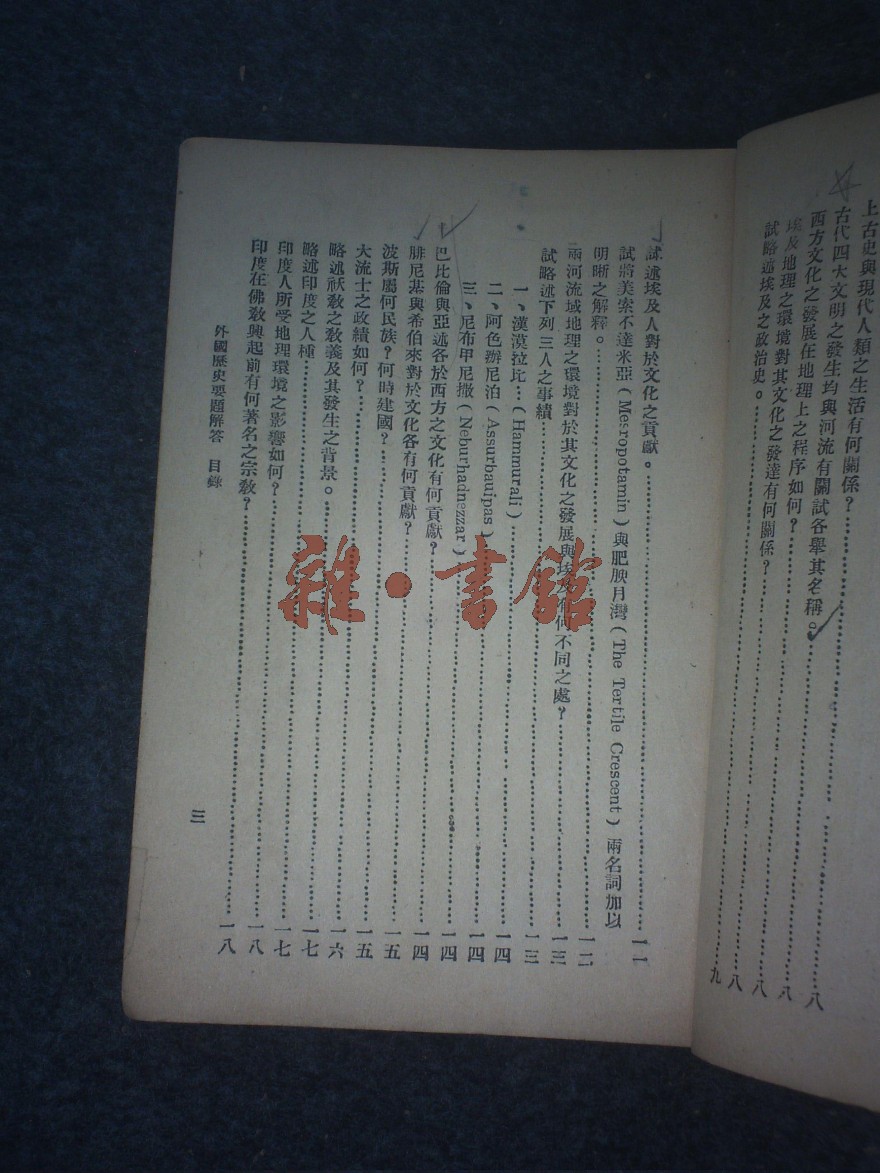 上古史與現代人類之生活有何關係？八
古代四大文明之發生均與河流有關試各舉其名稱。八
西方文化之發展在地理上之程序如何？八
埃及地理之環境對其文化之發達有何關係？八
試略述埃及之政治史。九
試述埃及人對於文化之貢獻。一一
試將美索不達米亞（Mesropotamin）與肥腴月灣（The Tertile Crescent）兩名詞加以
明晰之解釋。一二
兩河流域地理之環境對於其文化之發展與埃及有何不同之處？一三
試略述下列三人之事績一三
一、漢漠拉比…（Hammurali）一四
二、阿色辦尼泊（Assurbauipas）一四
三、尼布甲尼撒（Neburhadnezzar）一四
巴比倫與亞述各於西方之文化有何貢獻？一四
腓尼基與希伯來對於文化各有何貢獻？一四
波斯屬何民族？何時建國？一五
大流士之政績如何？一五
略述祆教之教義及其發生之背景。一六
略述印度之人種一七
印度人所受地理環境之影響如何？一七
印度在佛教興起前有何著名之宗教？一八
外國歷史要題解答　目錄
三
雜·書館